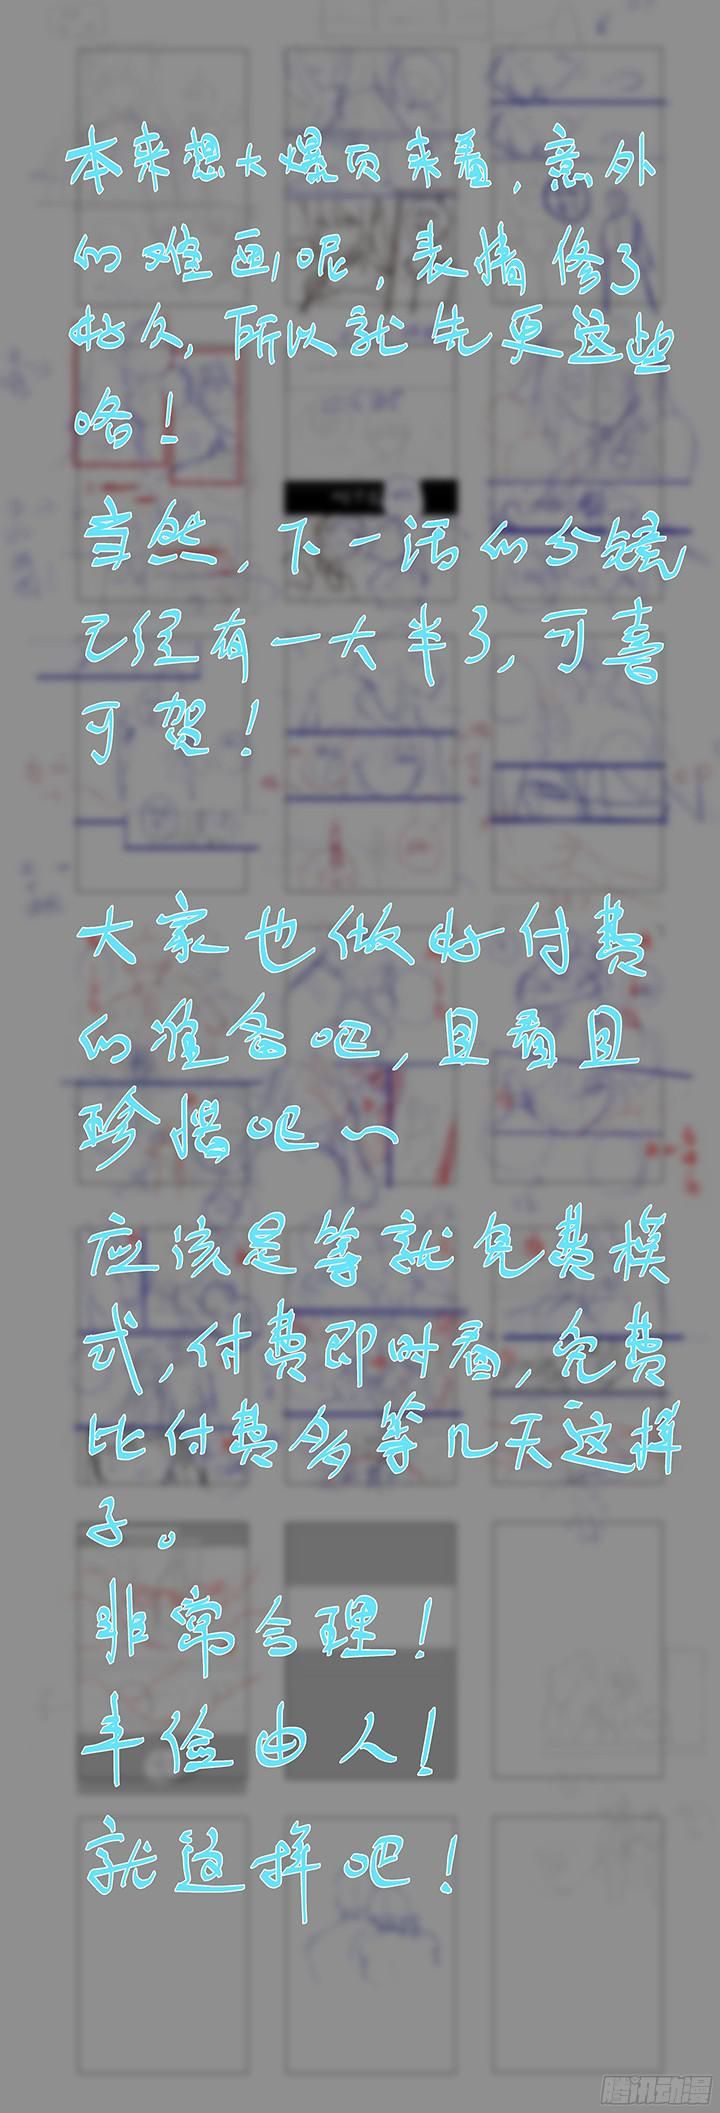 本来想大爆页来着，意外
的难画呢，表情修了
好久，所以就先更这些
咯！
当然，下一话的分镜
已经有一大半了，可喜
可贺！
大家也做好付费
的准备吧，且看且
珍惜吧~
应该是等就免费模
式，付费即时看，免费
比付费多等几天这样
子。
非常合理！
丰俭由人！
就这样吧！
腾讯动漫